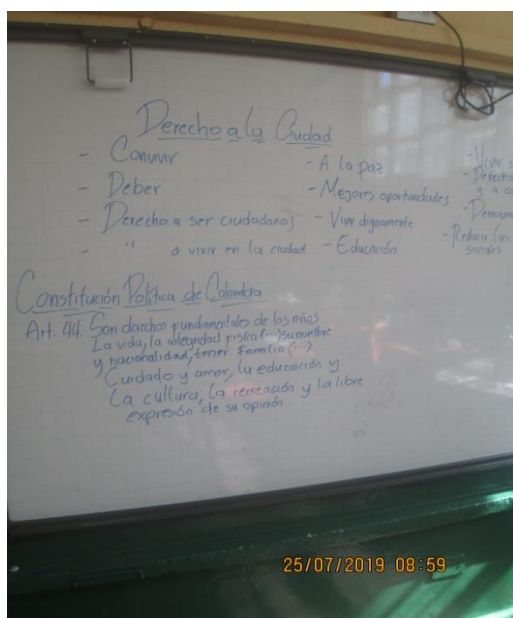 Derecho a la Ciudad
- Convivir
- Deber
- Derecho a ser ciudadanos
- " a vivir en la ciudad
- A la paz
- Mejores oportunidades
- Vivir dignamente
- Educación
- Vivir
- Derecho
y a
-
- Reducir las
sociales
Constitución Política de Colombia
Art. 44. Son derechos fundamentales de los niños
La vida, la integridad física (...) su nombre
y nacionalidad, tener familia (...)
Cuidado y amor, la educación y
La cultura, la recreación y la libre
expresión de su opinión
25/07/2019 08:59